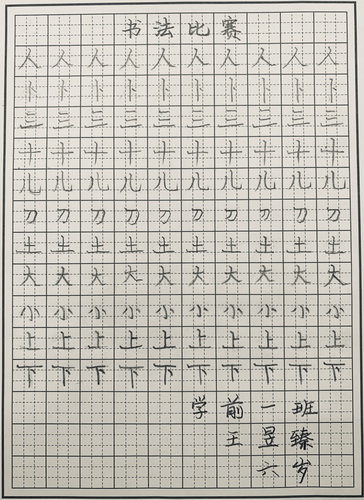 书法比赛
人人人人人人人人人人
卜卜卜卜卜卜卜卜卜卜
三三三三三三三三三三
十十十十十十十十十十
儿儿儿儿儿儿儿儿儿儿
刀刀刀刀刀刀刀刀刀刀
土土土土土土土土土土
大大大大大大大大大大
小小小小小小小小小小
上上上上上上上上上上
下下下下下下下下下下
学前一班
王昱臻
六岁